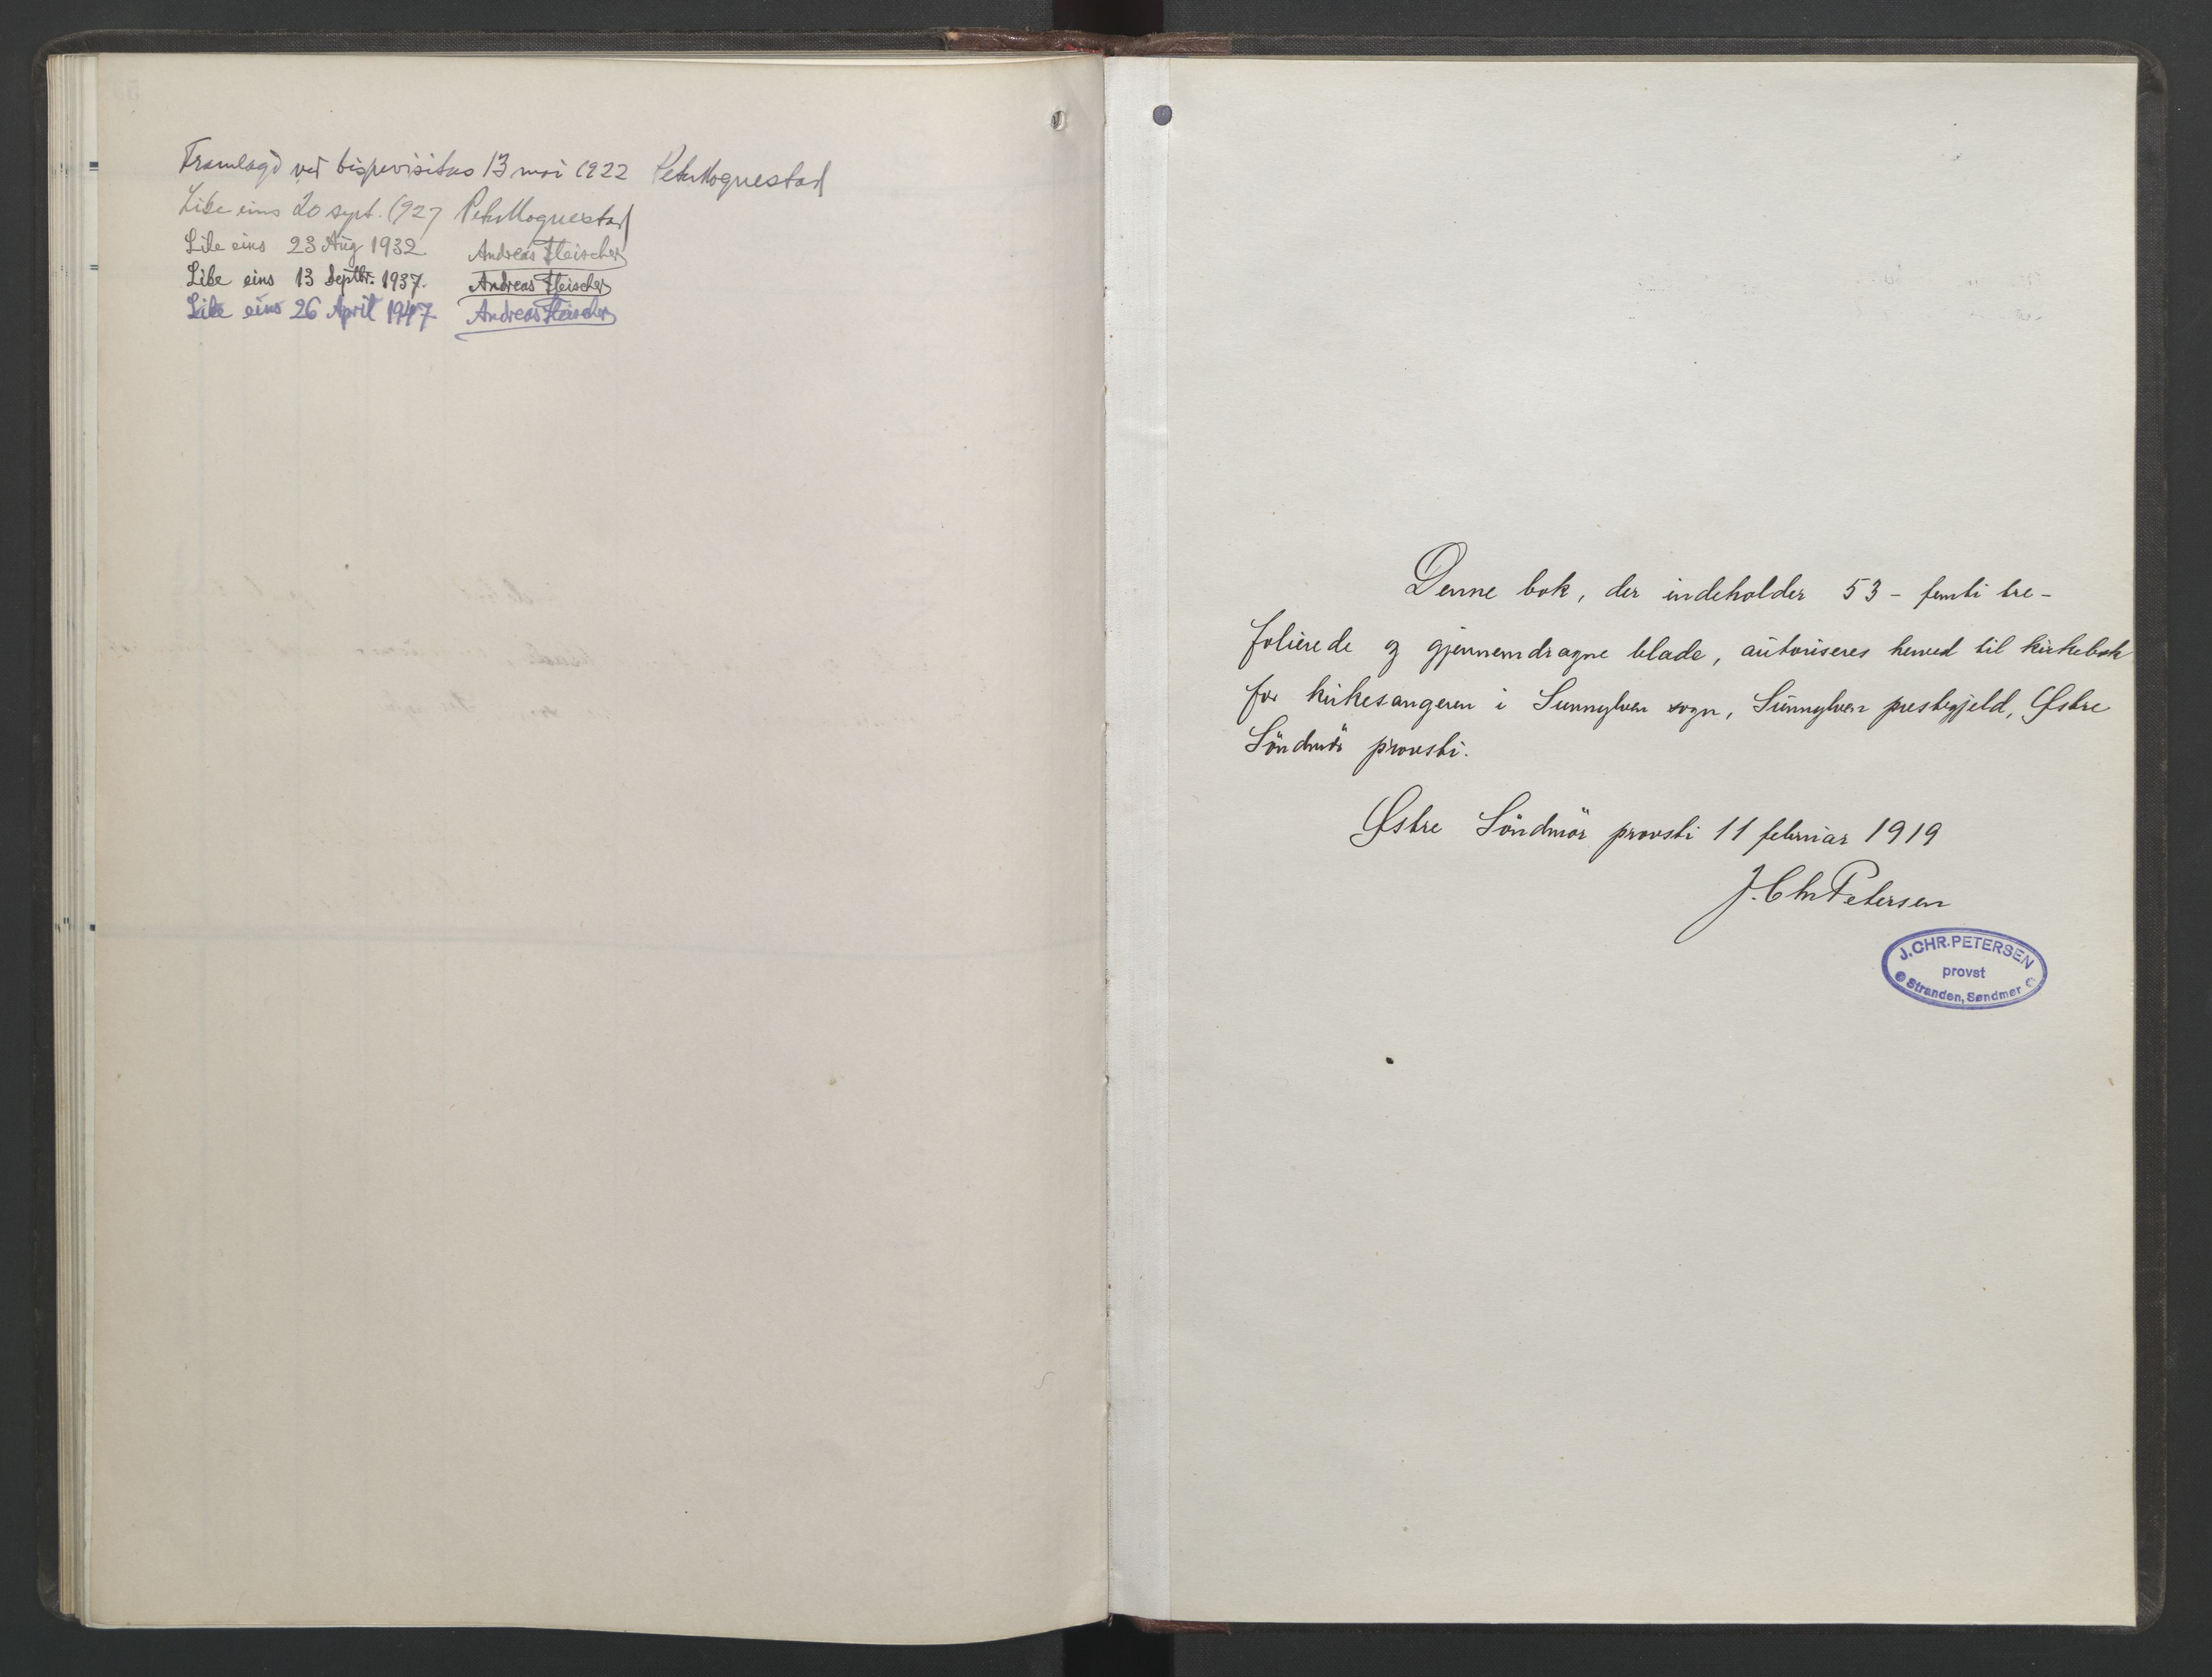 Framlagd ved bispevisitas 13 mai 1922 Peter Hognestad
Like eins 20 sept. 1927 Peter Hognestad
Like eins 23 Aug 1932 Andreas Fleischer
Like eins 13 Septbr. 1937. Andreas Fleischer
Like eins 26 April 1947 Andreas Fleischer
Denne bok, der indeholder 53 - femti tre -
folierede og gjennemdragne blade, autoriseres herved til kirkebok
for kirkesangeren i Sunnylven sogn, Sunnylven prestegjeld, Østre
Söndmör provsti.
Østre Söndmör provsti 11 februar 1919
J. Chr Petersen
J. CHR. PETERSEN
provst
Stranden, Søndmør